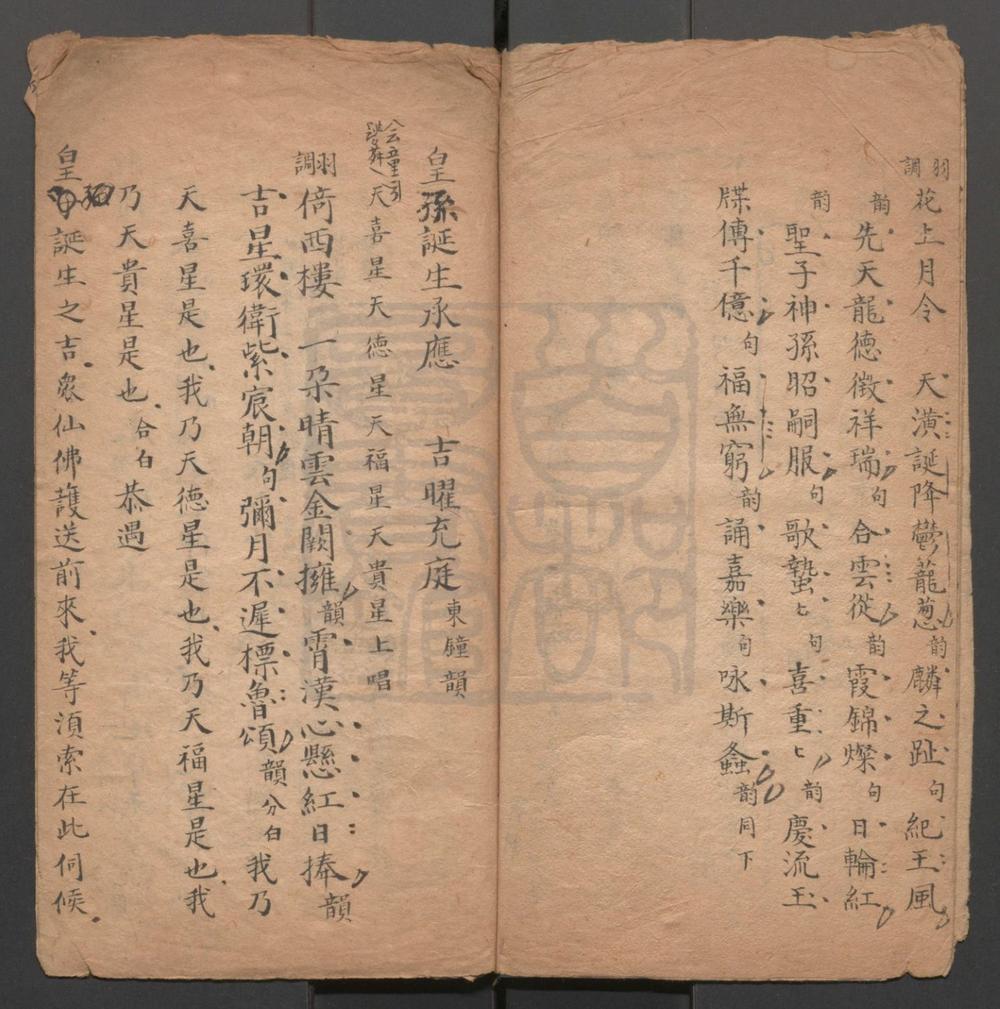 羽調 花上月令 天潢誕降鬱蘢葱韵麟之趾句紀王風
韵先天龍德徵祥瑞句合雲從韵霞錦燦句日輪紅
韵聖子神孫昭嗣服句歌蟄〻句喜重〻韵慶流玉
牒傳千億句福無窮韵誦嘉樂句咏斯螽韵同下
皇孫誕生承應 吉曜充庭 東鐘韻
仝童引 天喜星天德星天福星天貴星上唱
羽調 倚西樓 一朶晴雲金闕擁韻霄漢心懸紅日捧韻
吉星環衛紫宸朝句彌月不遲標魯頌韻分白我乃
天喜星是也我乃天德星是也我乃天福星是也我
乃天貴星是也合白恭遇
皇孫誕生之吉衆仙佛護送前來我等湏索在此伺候